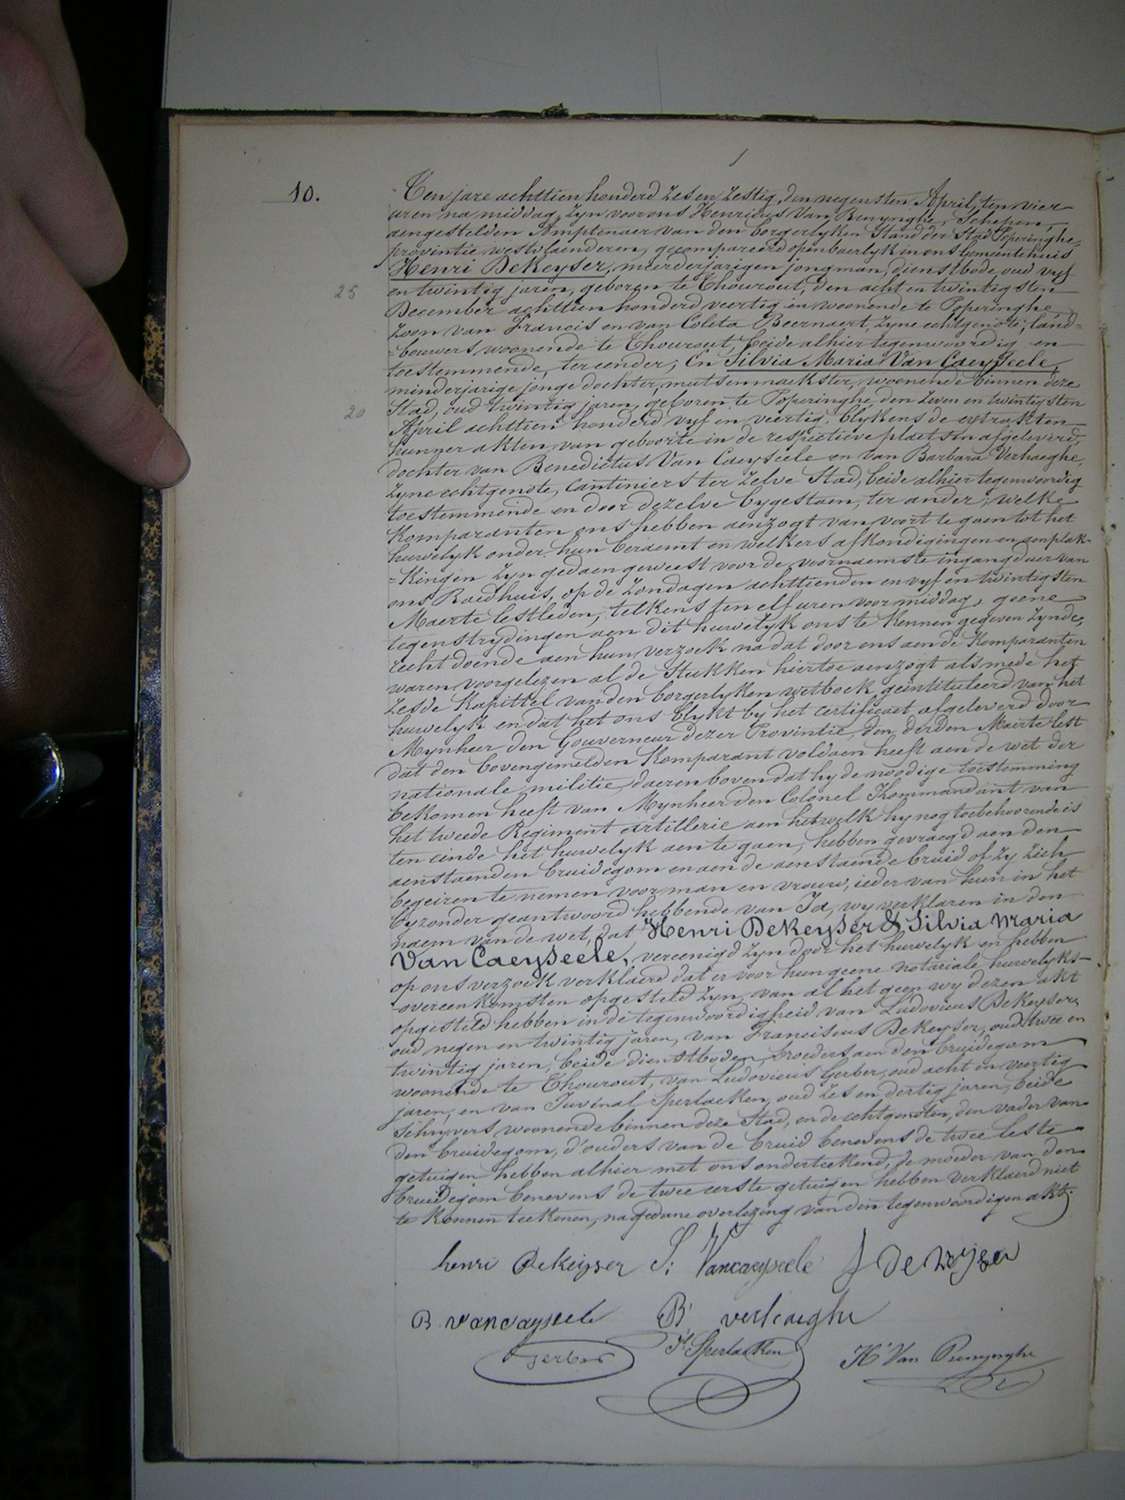 10.
Ten jare achttien honderd zes en zestig, den negensten April, ten vier
uren na middag, zyn voor ons Henricus Van Renynghe, Schepen,
aengestelden Amptenaer van den borgerlyken Stand der Stad Poperinghe,
provintie westvlaenderen, gecompareerd openbaerlyk in ons Gemeentehuis
Henri DeKeyser, meerderjarigen jongman, dienstbode, oud vyf
25
en twintig jaren, geboren te Thourout, den acht en twintigsten
December achttien honderd veertig en woonende te Poperinghe,
zoon van Francis en van Coleta Beernaert, zyne echtgenote, land=
=bouwers, woonende te Thourout, beide alhier tegenwoordig en
toestemmende, ter eender; En Silvia Maria Van Caeyseele,
minderjarige jonge dochter, mutsenmaekster, woonende binnen deze
20
Stad, oud twintig jaren, geboren te Poperinghe den zeven en twintigsten
April achttien honderd vyf en veertig, blykens de extrakten
hunner akten van geboorte in de respective plaetsen afgeleverd,
dochter van Benedictus Van Caeyseele en van Barbara Verhaeghe,
zyne echtgenote, Cantiniers ter zelve Stad, beide alhier tegenwoordig
toestemmende en door dezelve bygestaen, ter ander; welke
Komparanten ons hebben aenzogt van voort te gaen tot het
huwelyk onder hun beraemt en welkers afkondigingen en aenplak=
=kingen zyn gedaen geweest voor de voornaemste ingangdeur van
ons Raedhuis, op de zondagen achttienden en vyf en twintigsten
Maerte lestleden, telkens ten elf uren voor middag, geene
tegenstrydingen aen dit huwelyk ons te kennen gegeven zynde,
recht doende aen hun verzoek na dat door ons aen de Komparanten
waren voorgelezen al de Stukken hiertoe aenzogt als mede het
zesde Kapittel van den borgerlyken wetboek, geintituleerd van het
huwelyk en dat het ons blykt by het certificaet afgeleverd door
Mynheer den Gouverneur dezer Provintie, den derden Maerte lest
dat den bovengemelden Komparant voldaen heeft aen de wet der
nationale militie, daerenboven dat hy de noodige toestemming
bekomen heeft van Mynheer den Colonel Kommandant van
het tweede Regiment artillerie aen hetwelk hy nog toebehoorende is
ten einde het huwelyk aen te gaen, hebben gevraegd aen den
aenstaenden bruidegom en aen de aenstaende bruid of zy zich
begeiren te nemen voor man en vrouw, ieder van hun in het
byzonder geantwoord hebbende van Ja, wy verklaren in den
naem van de wet, dat Henri DeKeyser & Silvia Maria
Van Caeyseele, vereenigd zyn door het huwelyk en hebben
op ons verzoek verklaerd dat er voor hun geene notariale huwelyks=
overeenkomsten opgesteld zyn, van al het geen wy dezen akt
opgesteld hebben in de tegenwoordigheid van Ludovicus DeKeyser,
oud negen en twintig jaren, van Franciscus DeKeyser, oud twee en
twintig jaren, beide dienstboden, broeders aen den bruidegom
woonende te Thourout, van Ludovicus Gerber, oud acht en veertig
jaren, en van Juvenal Sperlaeken, oud zes en dertig jaren, beide
Schryvers woonende binnen deze Stad, en de echtgenoten, den vader van
den bruidegom, d'ouders van de bruid benevens de twee leste
getuigen hebben alhier met ons onderteekend, de moeder van den
bruidegom benevens de twee eerste getuigen hebben verklaerd niet
te konnen teekenen, na gedane overlezing van den tegenwoordigen akt.
henri DeKeyser S. Vancaeyseele
B. vancayseele B. verhaeghe
Gerber Jl. Sperlaeken H. Van Renynghe